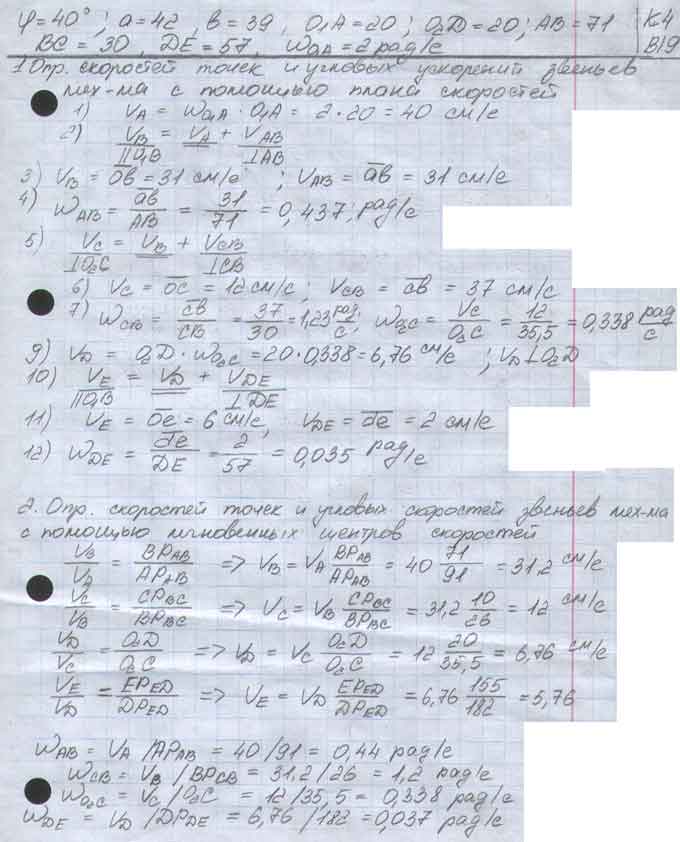 φ=40°; a=42, в=39, O₁A=20; O₂D=20; AB=71
BC=30, DE=57, ω₀₁A=2 рад/с
К4
В19
1 Опр. скоростей точек и угловых ускорений звеньев
мех-ма с помощью плана скоростей
1) VA = ωO₁A · O₁A = 2·20=40 см/с
2) VB/||O₁B = VA + VAB/⊥AB
3) VB = ов = 31 см/с ; VAB = ав = 31 см/с
4) ωAB = ав/AB = 31/71 = 0,437 рад/с
5) VC/⊥O₂C = VB + VCB/⊥CB
6) VC = ос = 12 см/с; VCB = св = 37 см/с
7) ωCB = св/CB = 37/30 = 1,23 рад/с, ωO₂C = VC/O₂C = 12/35,5 = 0,338 рад/с
9) VD = O₂D · ωO₂C = 20·0,338 = 6,76 см/с ; VD⊥O₂D
10) VE/||O₁B = VD + VDE/⊥DE
11) VE = ое = 6 см/с, VDE = de = 2 см/с
12) ωDE = de/DE = 2/57 = 0,035 рад/с
2. Опр. скоростей точек и угловых скоростей звеньев мех-ма
с помощью мгновенных центров скоростей
VB/VA = BPAB/APAB => VB = VA BPAB/APAB = 40 71/91 = 31,2 см/с
VC/VB = CPBC/BPBC => VC = VB CPBC/BPBC = 31,2 10/26 = 12 см/с
VD/VC = O₂D/O₂C => VD = VC O₂D/O₂C = 12 20/35,5 = 6,76 см/с
VE/VD = EPED/DPED => VE = VD EPED/DPED = 6,76 155/182 = 5,76
ωAB = VA /APAB = 40/91 = 0,44 рад/с
ωCB = VB /BPCB = 31,2/26 = 1,2 рад/с
ωO₂C = VC /O₂C = 12/35,5 = 0,338 рад/с
ωDE = VD /DPDE = 6,76 /182 = 0,037 рад/с